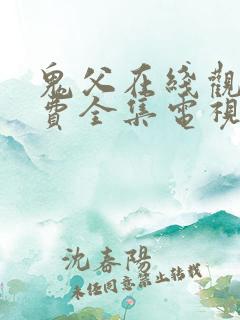 鬼父在綫觀
費全集電視
沈春陽
未經同意禁止轉載